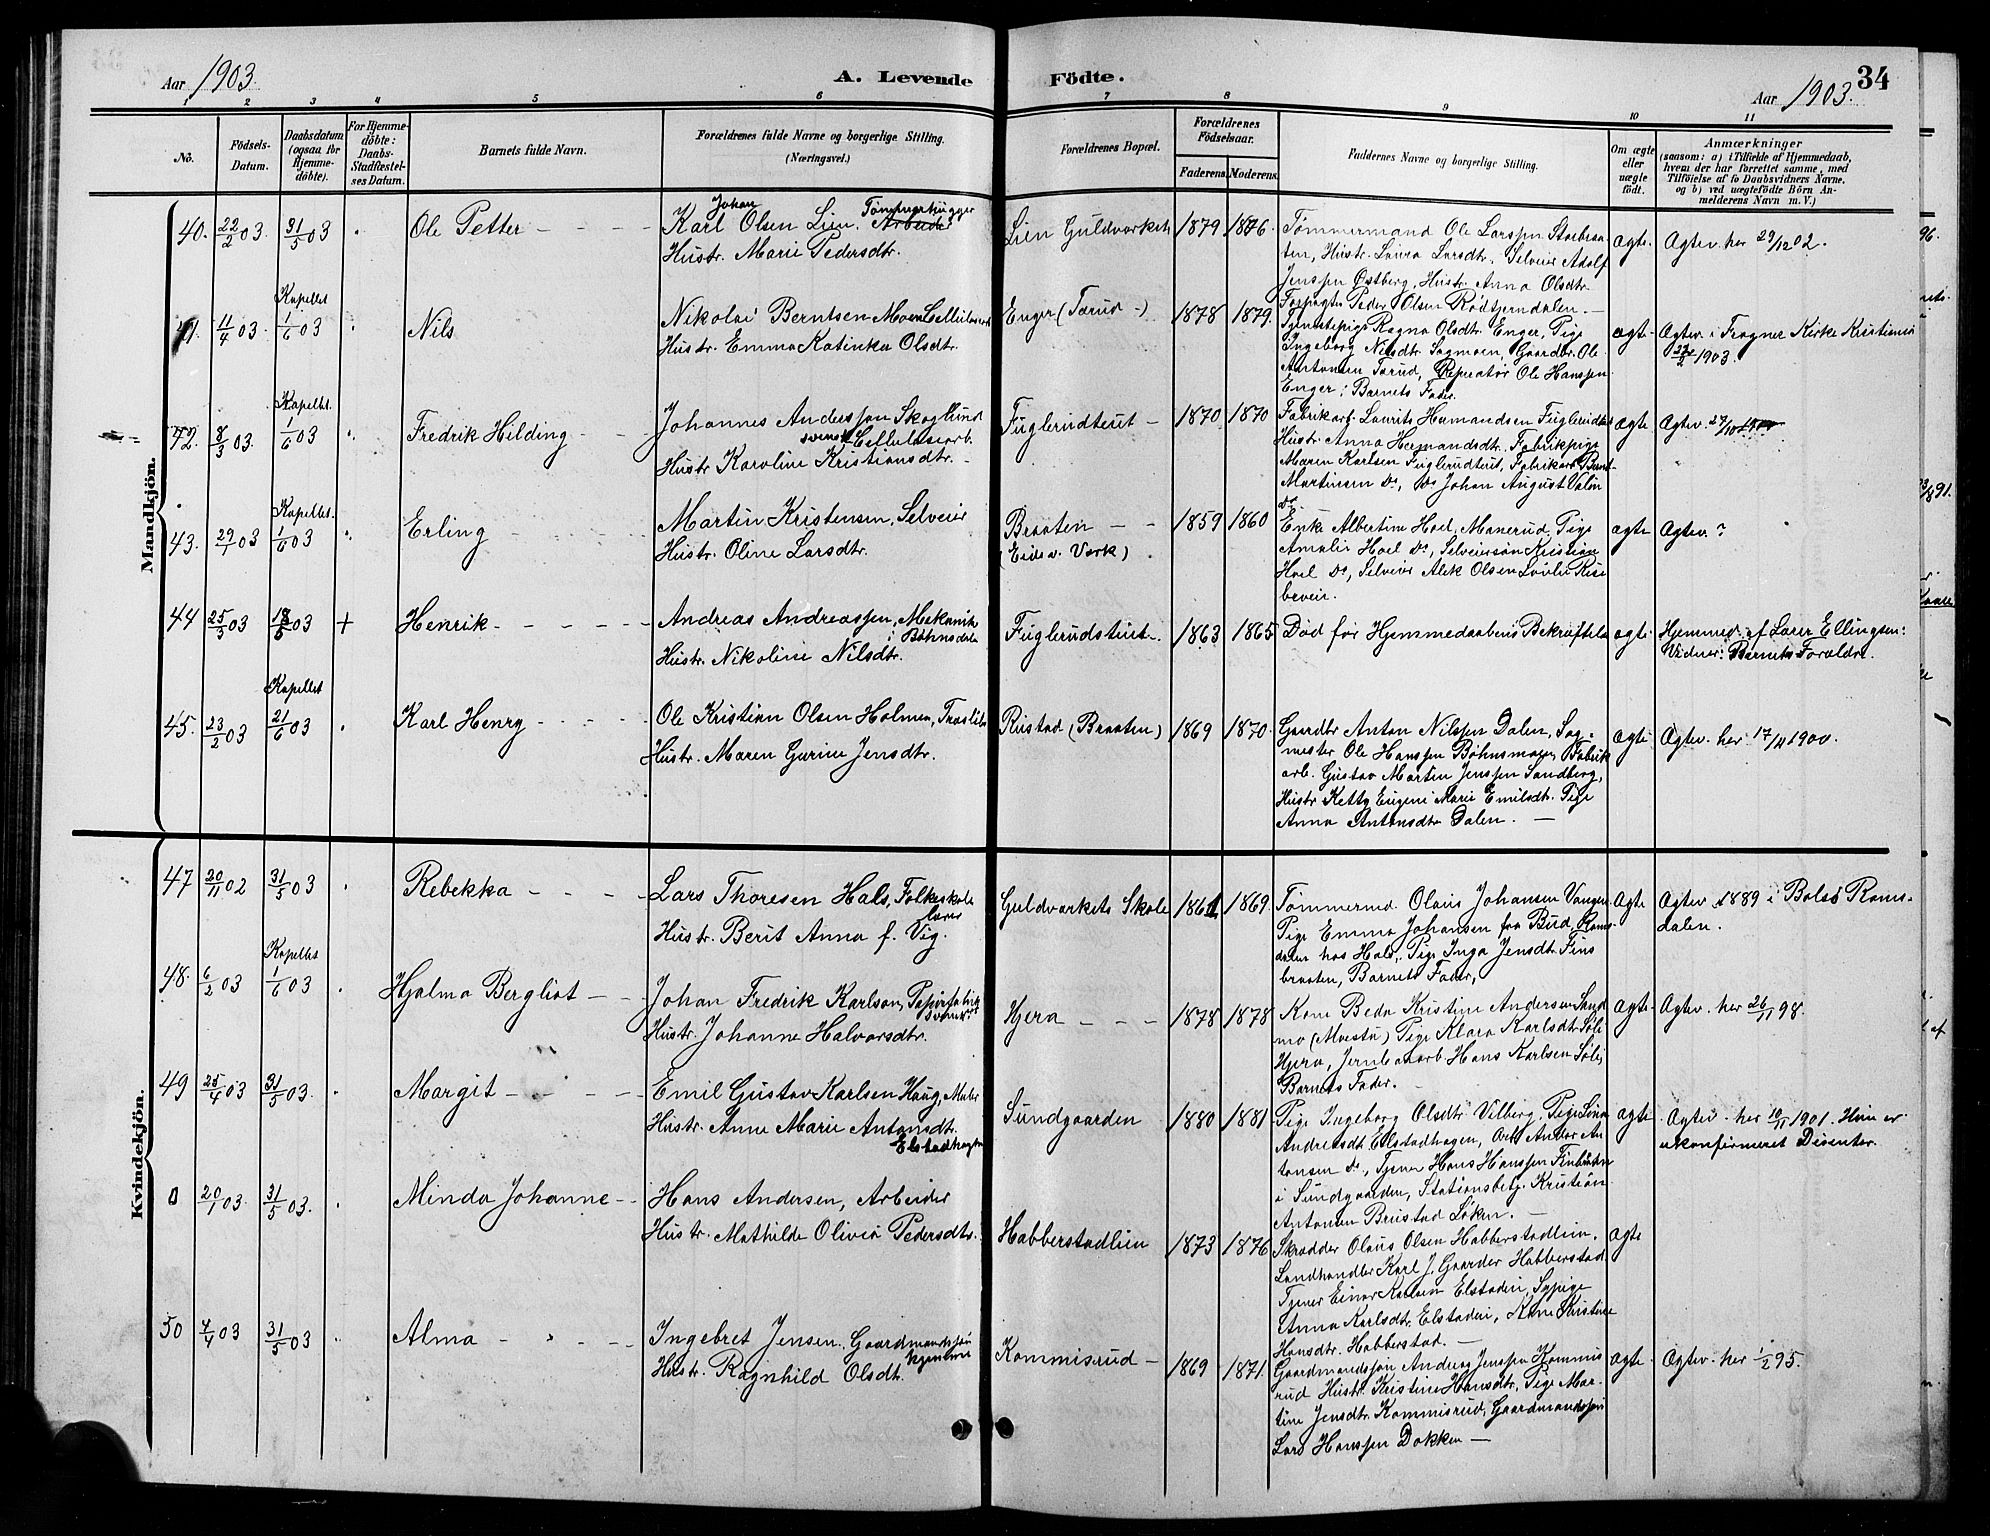 Aar 1903.
A. Levende Födte.
Aar 1903.
34
1 2 3 4 5 6 7 8 9 10 11
No.
Födsels-Datum.
Daabsdatum (ogsaa for Hjemme-döbte).
For Hjemme-döbte: Daabs-Stadfæstel-ses Datum.
Barnets fulde Navn.
Forældrenes fulde Navne og borgerlige Stilling. (Næringsvei.)
Forældrenes Bopæl.
Forældrenes Födselsaar.
Faderens. Moderens.
Faddernes Navne og borgerlige Stilling.
Om ægte eller uægte födt.
Anmærkninger
(saasom: a) i Tilfælde af Hjemmedaab,
hvem der har forrettet samme, med
Tilföielse af to Daabsvidners Navne,
og b) ved uægtefödte Börn An-
melderens Navn m. V.)
Mandkjön.
40. 22/2 03. 31/5 03 Ole Petter
Johan Tömmerhugger
Karl Olsen Lien. Arbeider
Hustr. Marie Pedersdtr.
Lien Guldværket 1879 1876
Tømmermand Ole Larssen
Hustr. Laura Larsdtr. Selveier Adolf
Jenssen Østberg, Hustr. Anna Olsdtr.
Peder Olsen Rödtjerndalen.
ægte Ægtev. her 29/12 02.
41. 11/4 03. Kapellet 1/6 03 Nils
Nikolai Berntsen Moen
Hustr. Emma Katinka Olsdtr.
Enger (Tærud) 1878 1879.
Tjenestepige Ragna Olsdtr. Enger, Pige
Ingeborg Nilsdtr. Sagmoen, Gaardbr. Ole
Antonsen Tærud, Reperatör Ole Hanssen
Enger; Barnets Fader.
ægte Ægtev. i Fragner Kirke Kristiania
1903.
42. 8/3 03. Kapellet. 1/6 03 Fredrik Hilding
Johannes Anderssen Skoglund
svensk Cellulosearb.
Hustr. Karoline Kristiansdtr.
Fuglerudteiet 1870 1870
Fabrikarb. Laurits
Hustr Anna Fabrikpige
Maren Karlsen Fuglerudteiet, Fabrikarb.
Martinsen do, do Johan August Valin
do
ægte Ægtev.
43. 29/1 03 Kapellet. 1/6 03 Erling
Martin Kristensen, Selveier
Hustr. Oline Larsdtr.
Braaten
(Eidsv. Værk) 1859 1860
Enke Albertine Hoel, Manerud, Pige
Amalie Hoel do, Selveiersön Kristian
Hoel do, Selveier Alek Olsen Lövlie Rise
breveie.
ægte Ægtev. ?
44 25/3 03 18/5 03 + Henrik
Andreas Andreassen, Mekanik.
i Bøhnsdalen
Hustr. Nikoline Nilsdtr.
Fuglerudsteiet 1863 1865
Død før Hjemmedaabens Bekræftelse
ægte Hjemmed. af Lærer Ellingsen:
Vidner: Barnets Forældre.
45. 23/2 03 Kapellet 21/6 03 Karl Henry
Ole Kristian Olsen Holmen,
Hustr. Maren Gurine Jensdtr.
Ristad (Braaten) 1869 1870.
Gaardbr Anton Nilssen Dalen, Sag-
mester Ole Hanssen Bøhnsmoen, Fabrik
arb. Gustav Martin Jenssen Sandberg,
Hustr Ketty Eugeni Marie Emilsdtr. Pige
Anna Antonsdtr Dalen.
ægte Ægtev. her 17/11 1900.
Kvindekjön.
47 20/11 02 31/5 03 Rebekka
Lars Thoresen Hals, Folkeskole
lærer
Hustr. Berit Anna f. Vig.
Guldværkets Skole 1861 1869.
Tømmermd. Olaus Johansen Vangen
Pige Emma Johansen fra Bud, Roms-
dalen hos Hals, Pige Inga Jensdtr. Fins
braaten, Barnets Fader,
ægte Ægtev. 1889 i Bolsö Roms-
dalen.
48. 6/2 03 Kapellet 1/6 03 Hjalma Bergliot
Johan Fredrik Karlson, Papirfabrik
svensk
Hustr. Johanne Halvorsdtr.
Hjera 1878 1878
Kone Beda Kristine Andersen Sand
mo (Mæstu) Pige Klara Karlsdtr Sölie
Hjera, Jernbanearb. Hans Karlsen Sölie,
Barnets Fader.
ægte Ægtev. her 26/11 98.
49 25/4 03 31/5 03. Margit
Emil Gustav Karlsen Haug, Maler
Hustr. Anne Marie Antonsdtr.
Elstadhagen
Sundgaarden 1880 1881
Pige Ingeborg Olsdtr. Vilberg, Pige Lina
Andreasdt. Elstadhagen, Anders An
tonsen do, Tjener Hans Hanssen Finbraaten
i Sundgaarden, Stationsbetj. Kristian
Antonsen Brustad Löken.
ægte Ægtev. her 10/11 1901. Hun er
ukonfirmeret Disenter.
0 20/1 03. 31/5 03. Minda Johanne
Hans Andersen, Arbeider
Hustr. Mathilde Olivia Pedersdtr.
Habberstadlien 1873 1876
Skrædder Olaus Olsen Habberstadlien,
Landhandler Karl J. Gaarder Habberstad
Tjener Einar Karlsen Elstadeie, Sypige
Anna Karlsdtr. Elstadeie, Kone Kristine
Hansdtr. Habberstad.
ægte
50 4/4 03 31/5 03 Alma
Ingebret Jensen, Gaardmandssön
hjemme
Hustr. Ragnhild Olsdtr.
Kommisrud 1869 1871.
Gaardmandssön Anders Jenssen Kommis
rud Hustr. Kristine Hansdtr., Pige Mar-
tine Jensdtr. Kommisrud, Gaardmandssön
Lars Hanssen Dokken
ægte Ægtev. her 1/2 95.